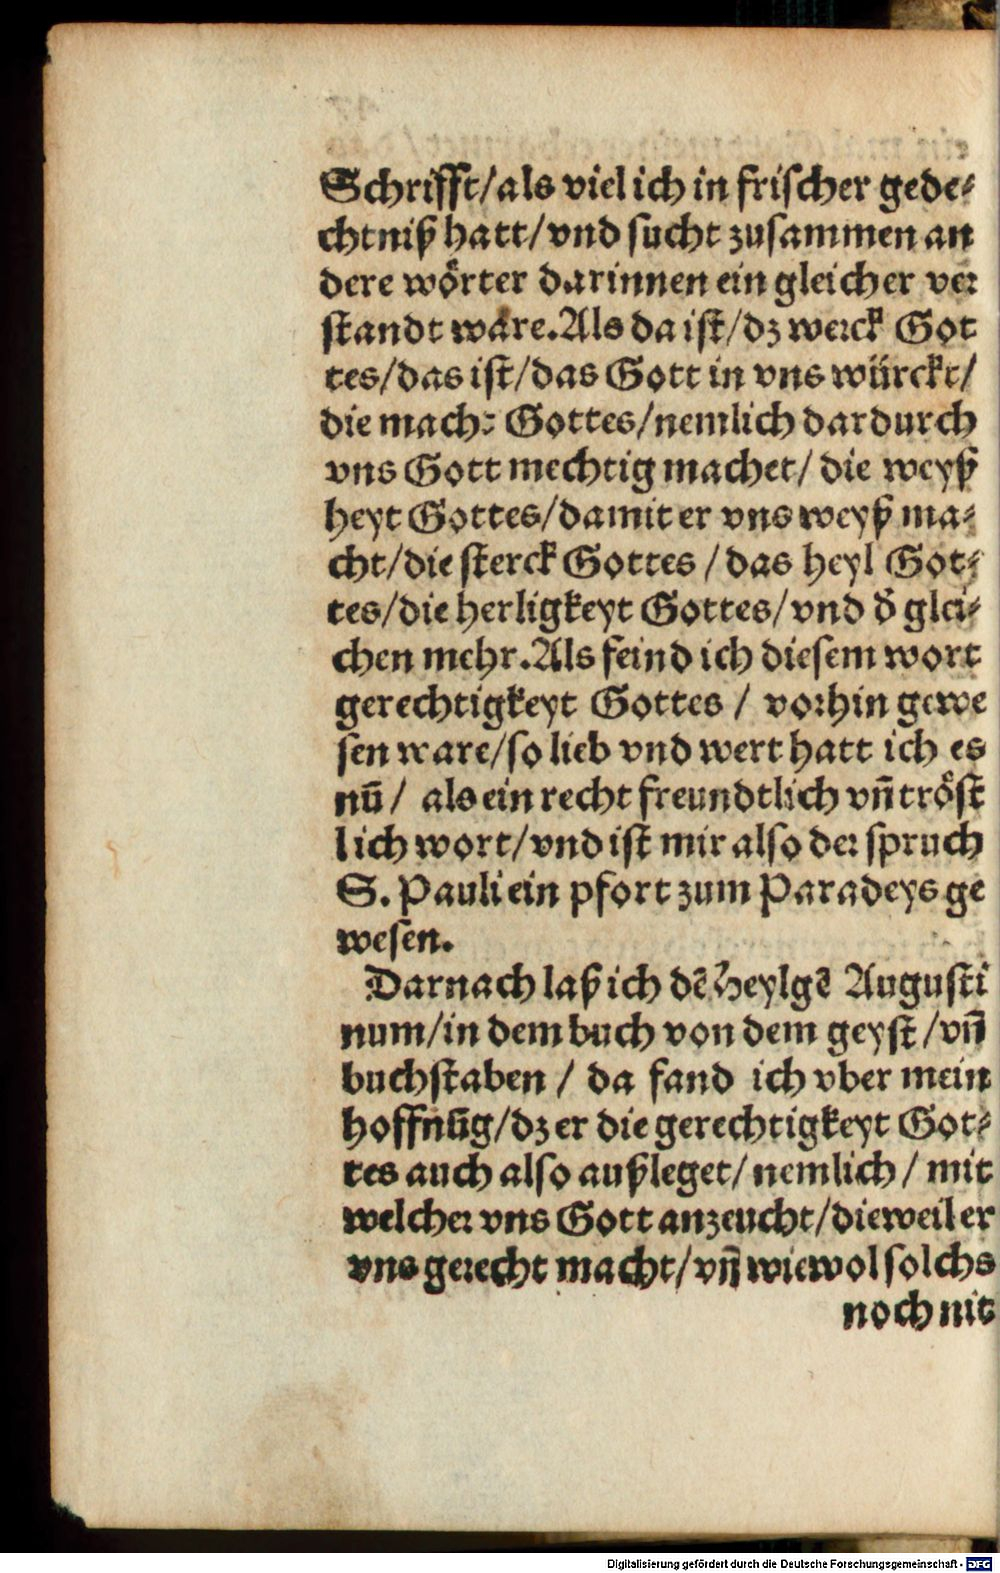 Schrifft/als viel ich in frischer gede⸗
chtniß hatt/vnd sucht zusammen an
dere woͤrter darinnen ein gleicher ver
standt ware. Als da ist/dz werck Got
tes/das ist/das Gott in vns würckt/
die macht Gottes/nemlich dardurch
vns Gott mechtig machet/ die weyß
heyt Gottes/damit er vns weyß ma⸗
cht/die sterck Gottes /das heyl Got⸗
tes/die herligkeyt Gottes/vnd d̃ glei⸗
chen mehr. Als feind ich diesem wort
gerechtigkeyt Gottes / vorhin gewe
sen ware/so lieb vnd wert hatt ich es
nũ/ als ein recht freundtlich vñ troͤst
lich wort/vnd ist mir also der spruch
S. Pauli ein pfort zum Paradeys ge
wesen.
Darnach laß ich dẽ Heylgẽ Augusti
num/in dem buch von dem geyst /vñ
buchstaben / da fand ich vber mein
hoffnũg/dz er die gerechtigkeyt Got⸗
tes auch also außleget/nemlich / mit
welcher vns Gott anzeucht/dieweil er
vns gerecht macht/vñ wiewol solchs
noch nit
Digitalisierung gefördert durch die Deutsche Forschungsgemeinschaft - DFG